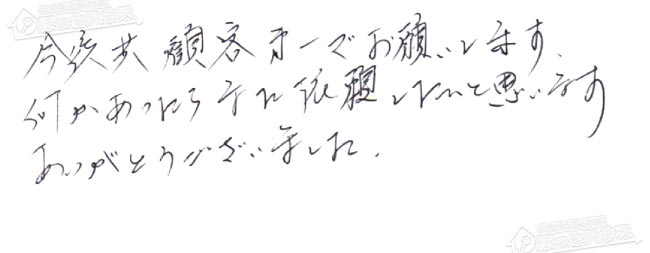 今後共 顧客第一でお願いします。
何かあったら又に依頼したいと思います
ありがとうございました。